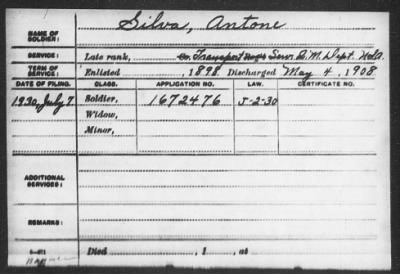 Silva, Antone
NAME OF SOLDIER:
SERVICE: Late rank, Co. Transport Reg't Serv. Q.M. Dept. Vols.
TERM OF SERVICE: Enlisted , 1898, Discharged May 4, 1908
DATE OF FILING. CLASS. APPLICATION NO. LAW. CERTIFICATE NO.
1930, July 7 Soldier, 1672476 5-2-30
Widow,
Minor,
ADDITIONAL SERVICES:
REMARKS:
Died , 1 , at